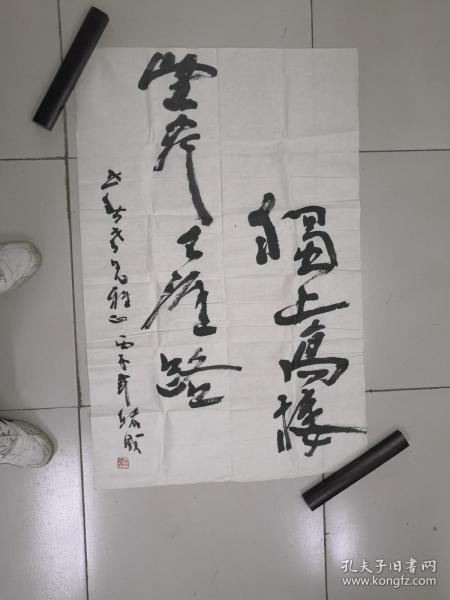 獨上高樓
望尽天涯路
雅正 丙子年
孔夫子旧书网
www.kongfz.com